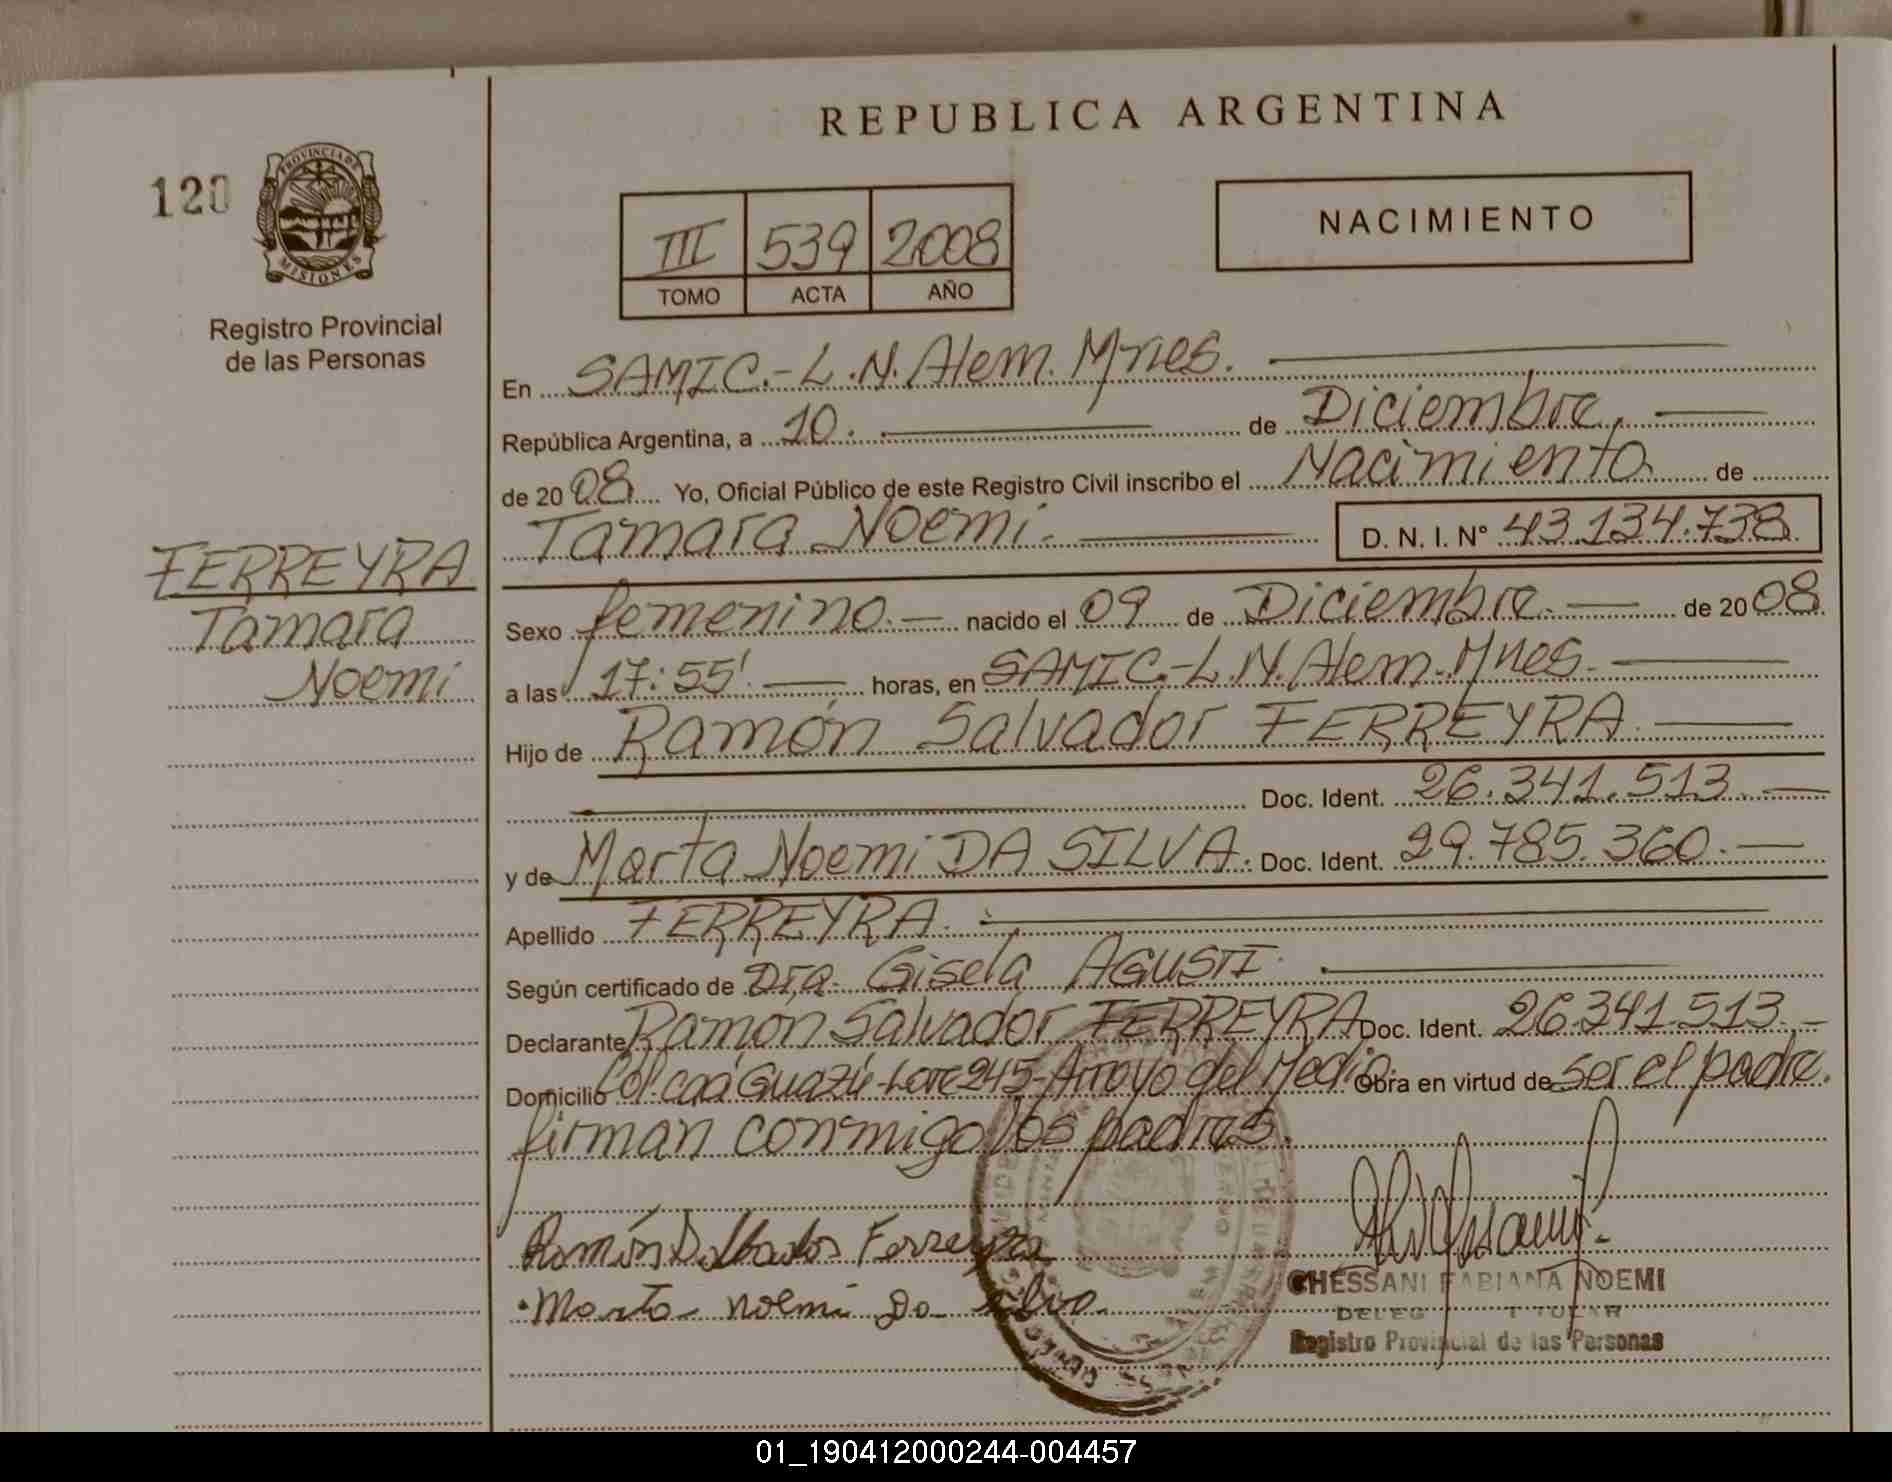 REPUBLICA ARGENTINA
120
PROVINCIA DE
MISIONES
Registro Provincial
de las Personas
III 539 2008
TOMO ACTA AÑO
NACIMIENTO
En SAMIC.-L.N. Alem. Mnes.
República Argentina, a 10. de Diciembre,
de 2008 Yo, Oficial Público de este Registro Civil inscribo el Nacimiento de
Tamara Noemi. D. N. I. N° 43.134.738
FERREYRA
Tamara
Noemi
Sexo femenino. nacido el 09 de Diciembre. de 2008
a las 17:55' horas, en SAMIC.-L.N. Alem. Mnes.
Hijo de Ramón Salvador FERREYRA.
Doc. Ident. 26.341.513.
y de Marta Noemi DA SILVA. Doc. Ident. 29.785.360.
Apellido FERREYRA.
Según certificado de Dra. Gisela AGUSTI.
Declarante Ramon Salvador FERREYRA Doc. Ident. 26.341.513.
Domicilio Col. caá Guazú-Lote 245-Arroyo del Medio. Obra en virtud de ser el padre.
firman conmigo los padres.
Ramón Ferreyra
Marta noemi Da silva
CHESSANI FABIANA NOEMI
DELEG TITULAR
Registro Provincial de las Personas
01_190412000244-004457